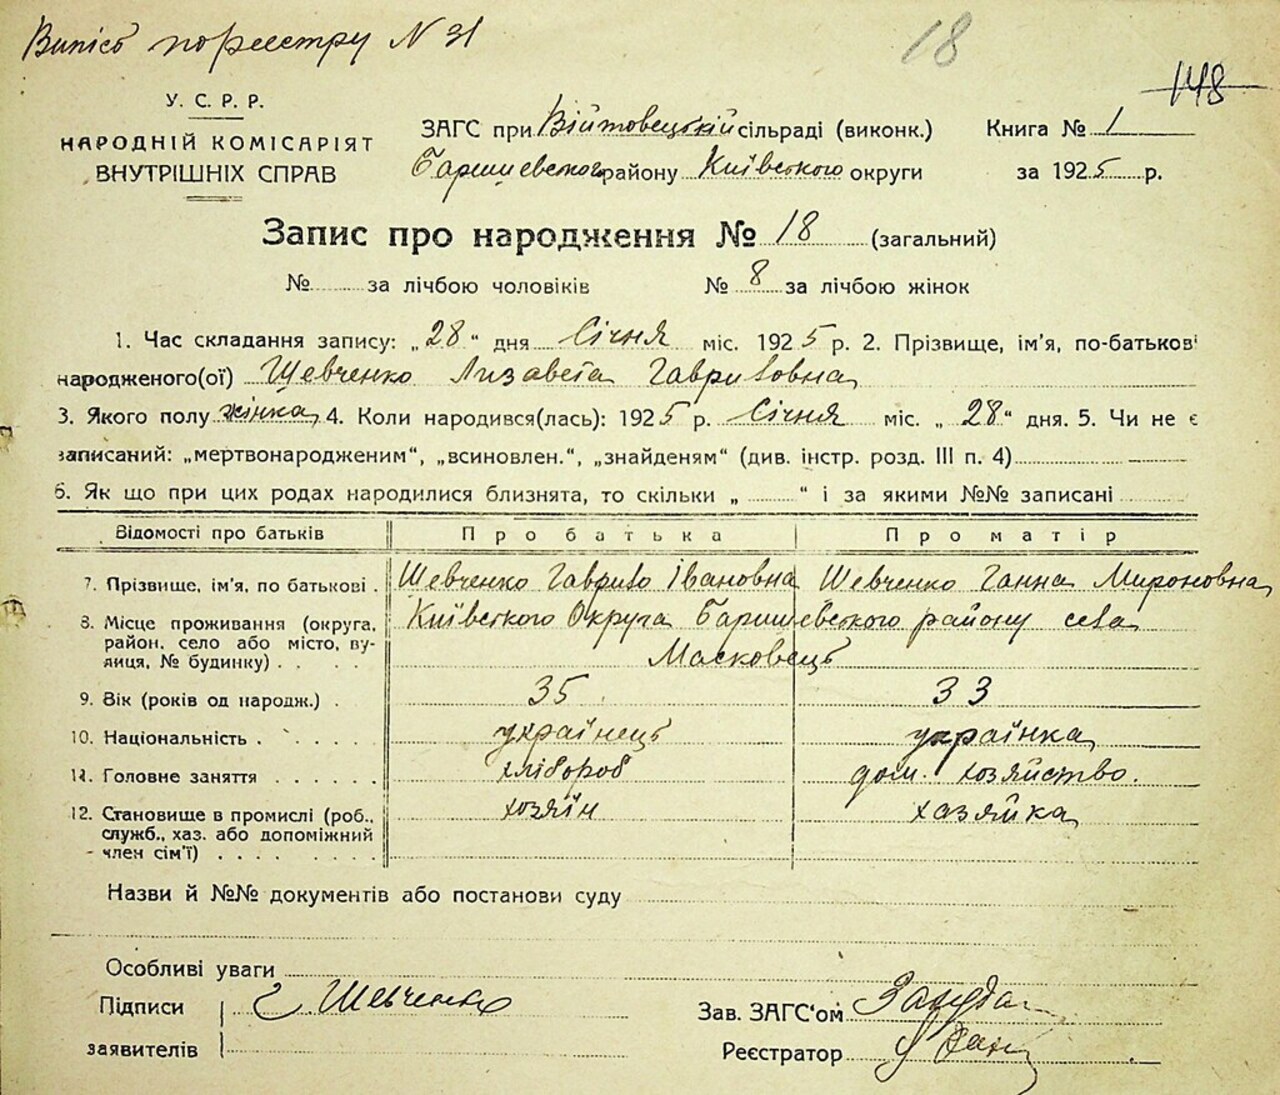 Випісь по реєстру N 31
18
148
У. С. Р. Р.
НАРОДНІЙ КОМІСАРІЯТ
ВНУТРІШНІХ СПРАВ
ЗАГС при Війтовецькій сільраді (виконк.)
Баришевського району Київського округи
Книга № 1
за 1925 р.
Запис про народження № 18 (загальний)
№ за лічбою чоловіків № 8 за лічбою жінок
1. Час складання запису: „28“ дня Січня міс. 1925 р. 2. Прізвище, ім'я, по-батькові
народженого(ої) Шевченко Лизавета Гавриловна
3. Якого полу жінка 4. Коли народився(лась): 1925 р. Січня міс. „28“ дня. 5. Чи не є
записаний: „мертвонародженим“, „всиновлен.“, „знайденям“ (див. інстр. розд. III п. 4)
6. Як що при цих родах народилися близнята, то скільки „ “ і за якими №№ записані
Відомості про батьків Про батька Про матір
7. Прізвище, ім'я, по батькові . Шевченко Гаврило Івановна Шевченко Ганна Мироновна
8. Місце проживання (округа, Київського Округа Баришевського району села
район, село або місто, ву-
лиця, № будинку) . . . . Масковець
9. Вік (років од народж.) . 35 33
10. Національність . . . . . . українець українка
11. Головне заняття . . . . . . хлібороб дом. хозяйство.
12. Становище в промислі (роб., хозяїн хазяйка
служб., хаз. або допоміжний
член сім'ї) . . . . . . . .
Назви й №№ документів або постанови суду
Особливі уваги
Підписи Г Шевченко
заявителів
Зав. ЗАГС'ом
Реєстратор